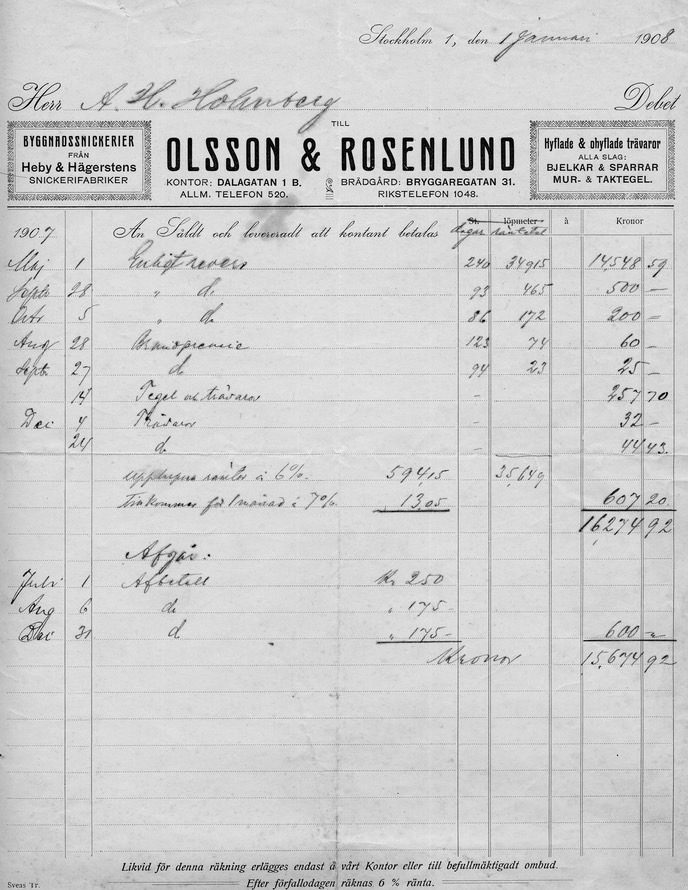 Stockholm 1, den 1 Januari 1908
Herr A. H. Holmberg Debet
TILL
BYGGNADSSNICKERIER
FRÅN
Heby & Hägerstens
SNICKERIFABRIKER
OLSSON & ROSENLUND
KONTOR: DALAGATAN 1 B. BRÄDGÅRD: BRYGGAREGATAN 31.
ALLM. TELEFON 520. RIKSTELEFON 1048.
Hyflade & ohyflade trävaror
ALLA SLAG:
BJELKAR & SPARRAR
MUR- & TAKTEGEL.
1907. An Såldt och levereradt att kontant betalas St. löpmeter à Kronor
dagar räntetal
Maj 1 Enligt revers 240 34915 14,548 59
Sept. 28 " d. 93 465 500 —
Oktr 5 " d. 86 172 200 —
Aug 28 123 74 60 —
Sept. 27 d. 94 23 25 —
14 Tegel och trävaror - 257 70
Dec 4 Trävaror - 32 —
24 d. - 44 43.
Upplupna räntor à 6%. 594,15 35,649
Tillkommer för 1 månad à 7% 13,05 607 20.
16,274 92
Afgår:
Juli 1 Afbetalt Kr 250
Aug 6 d. " 175 -
Dec 31 d " 175 - 600 —
Kronor 15,674 92
Likvid för denna räkning erlägges endast å vårt Kontor eller till befullmäktigadt ombud.
Efter förfallodagen räknas 6 % ränta.
Sveas Tr.